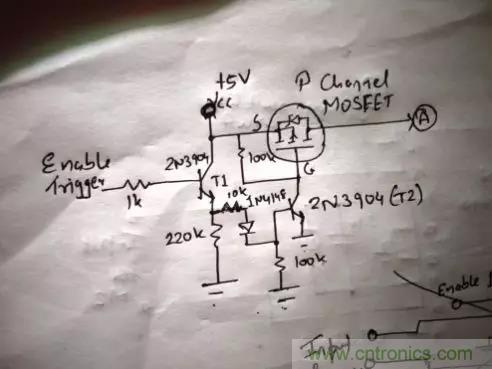 +5V
Vcc
P Channel
MOSFET
S
A
Enable
Trigger
2N3904
T1
100k
G
1k
10k
1N4148
2N3904 (T2)
220k
100k
Enable
Input
www.cntronics.com